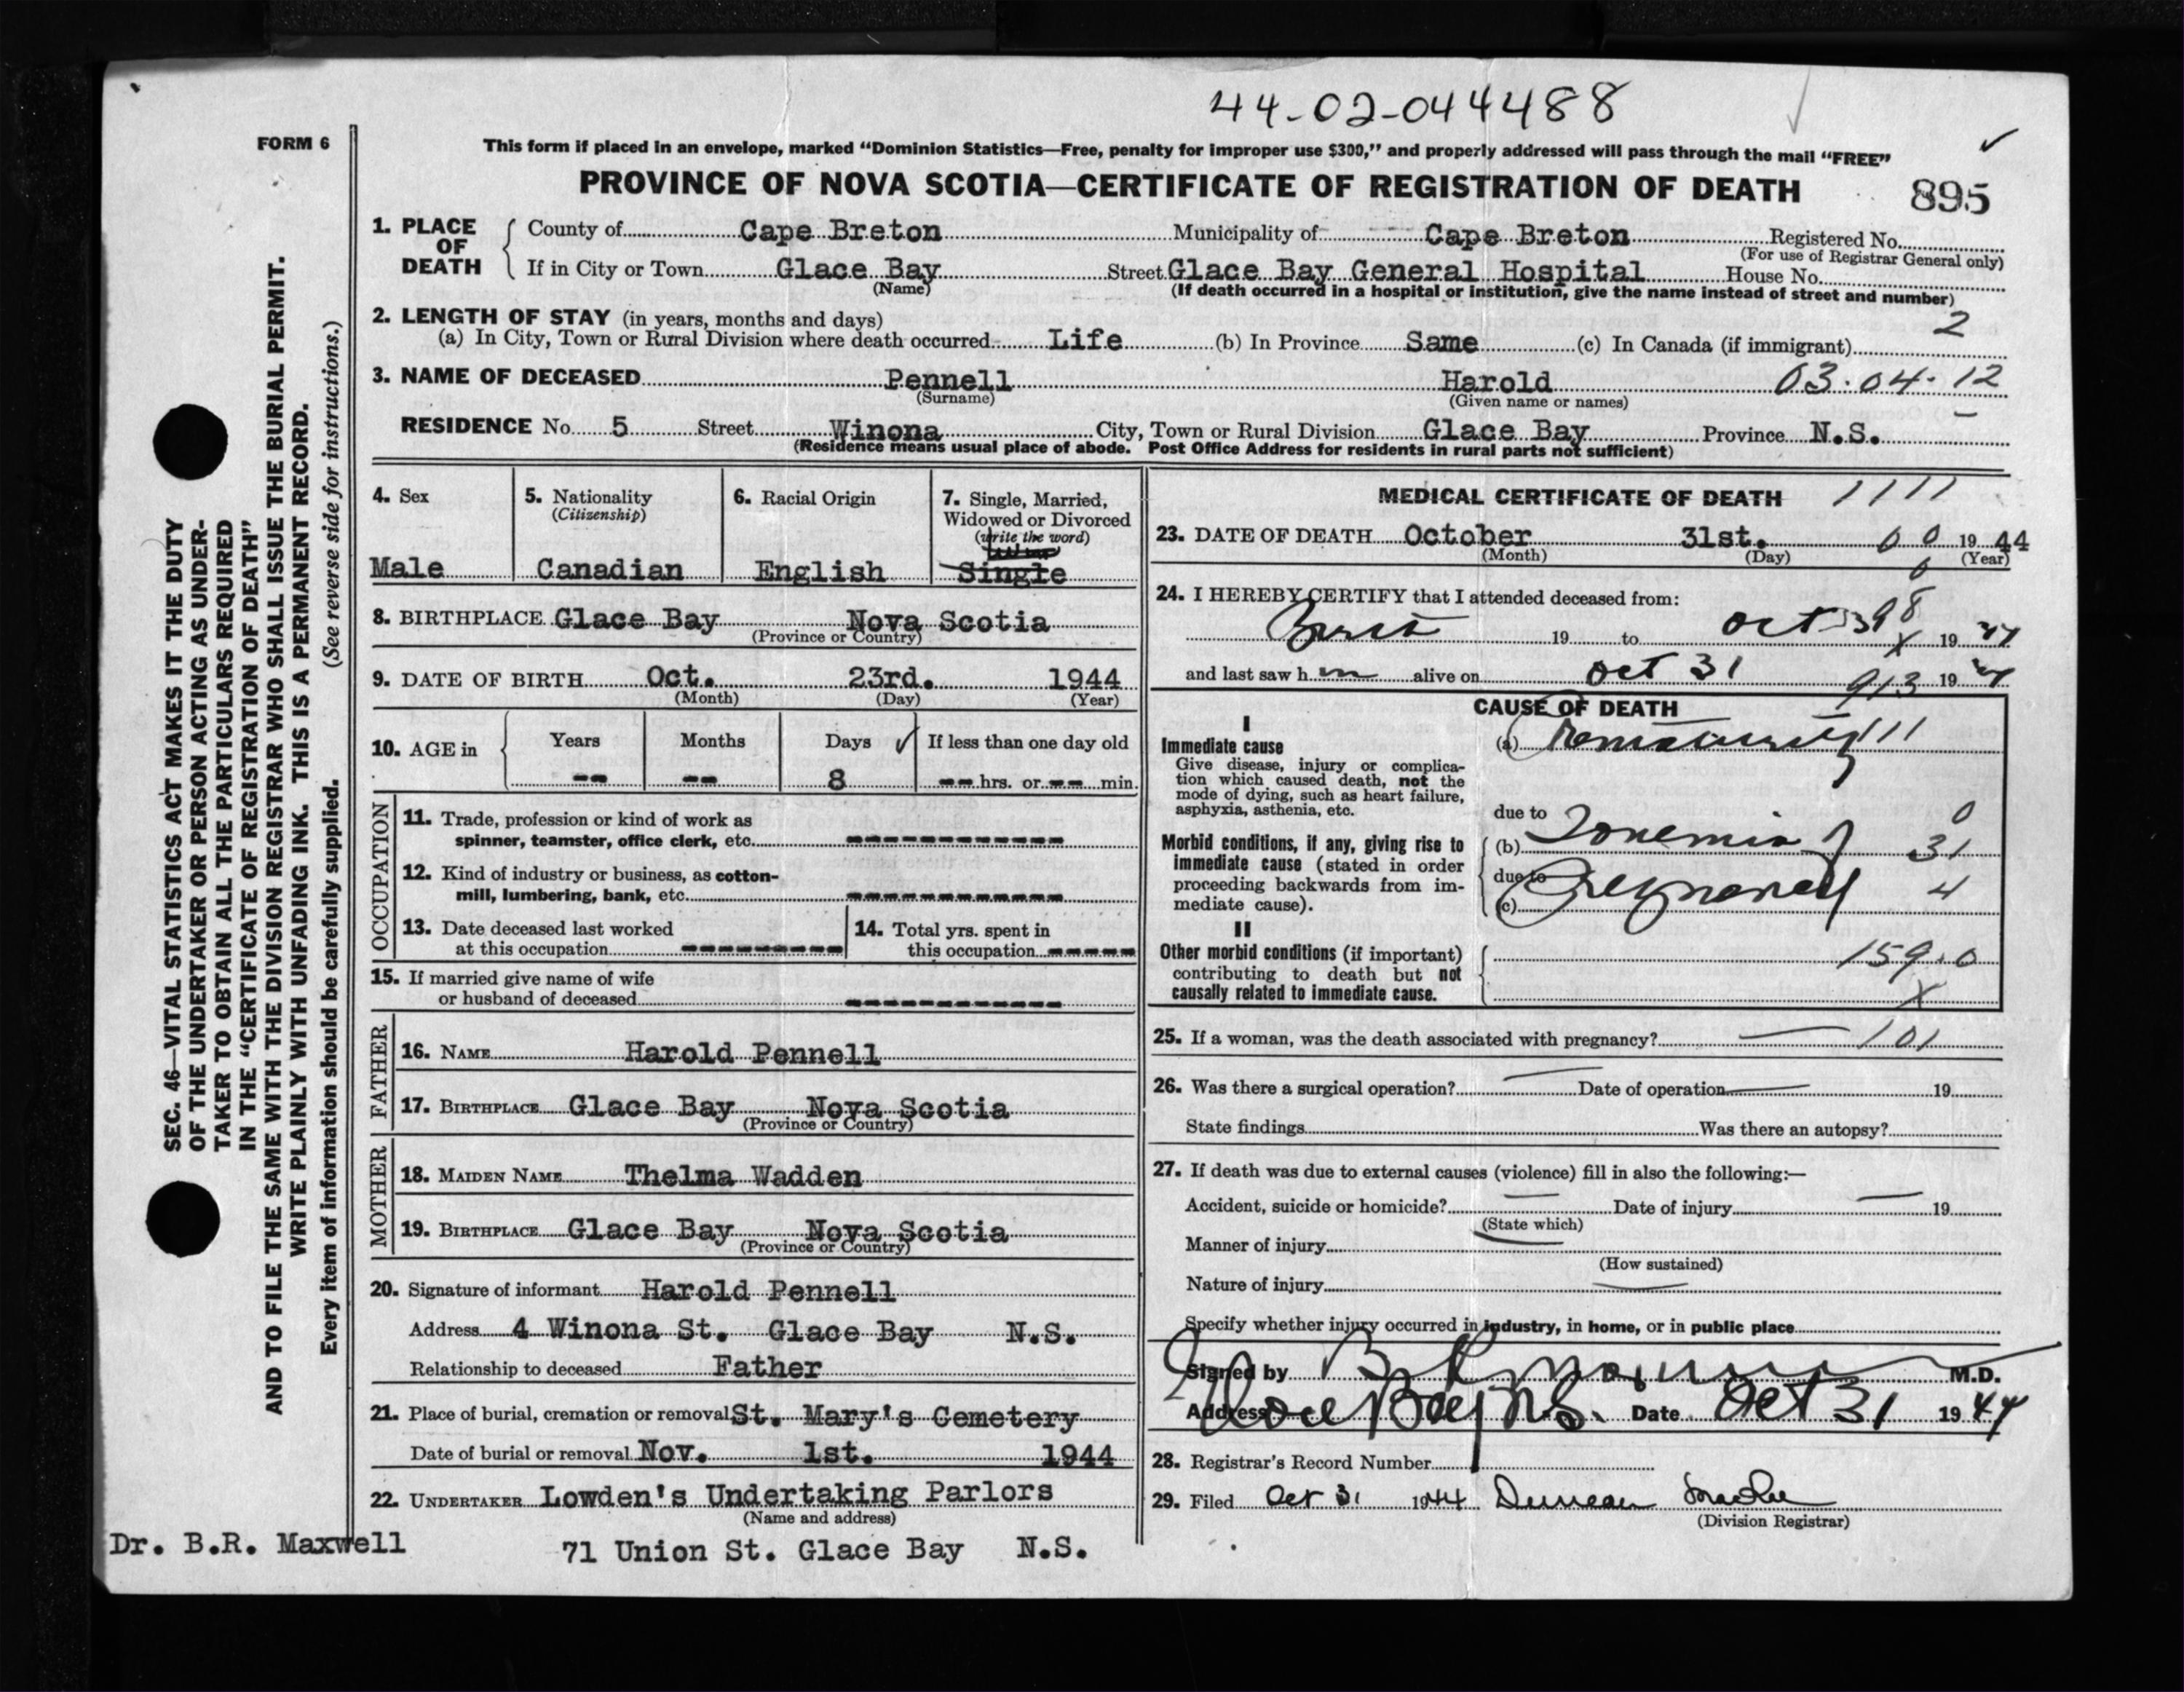 44-02-044488
FORM 6
This form if placed in an envelope, marked "Dominion Statistics—Free, penalty for improper use $300," and properly addressed will pass through the mail "FREE"
PROVINCE OF NOVA SCOTIA—CERTIFICATE OF REGISTRATION OF DEATH
895
1. PLACE OF DEATH
County of Cape Breton Municipality of Cape Breton Registered No.
(For use of Registrar General only)
If in City or Town Glace Bay Street Glace Bay General Hospital House No.
(Name) (If death occurred in a hospital or institution, give the name instead of street and number)
2. LENGTH OF STAY (in years, months and days) 2
(a) In City, Town or Rural Division where death occurred Life (b) In Province Same (c) In Canada (if immigrant)
3. NAME OF DECEASED Pennell Harold 03.04.12
(Surname) (Given name or names)
RESIDENCE No. 5 Street Winona City, Town or Rural Division Glace Bay Province N.S.
(Residence means usual place of abode. Post Office Address for residents in rural parts not sufficient)
4. Sex
Male
5. Nationality
(Citizenship)
Canadian
6. Racial Origin
English
7. Single, Married,
Widowed or Divorced
(write the word)
Single
8. BIRTHPLACE Glace Bay Nova Scotia
(Province or Country)
9. DATE OF BIRTH Oct. 23rd. 1944
(Month) (Day) (Year)
10. AGE in
Years Months Days If less than one day old
-- -- 8 -- hrs. or -- min.
OCCUPATION
11. Trade, profession or kind of work as
spinner, teamster, office clerk, etc.
12. Kind of industry or business, as cotton-
mill, lumbering, bank, etc.
13. Date deceased last worked
at this occupation
14. Total yrs. spent in
this occupation
15. If married give name of wife
or husband of deceased
FATHER
16. NAME Harold Pennell
17. BIRTHPLACE Glace Bay Nova Scotia
(Province or Country)
MOTHER
18. MAIDEN NAME Thelma Wadden
19. BIRTHPLACE Glace Bay Nova Scotia
(Province or Country)
20. Signature of informant Harold Pennell
Address 4 Winona St. Glace Bay N.S.
Relationship to deceased Father
21. Place of burial, cremation or removal St. Mary's Cemetery
Date of burial or removal Nov. 1st. 1944
22. UNDERTAKER Lowden's Undertaking Parlors
(Name and address)
71 Union St. Glace Bay N.S.
Dr. B.R. Maxwell
MEDICAL CERTIFICATE OF DEATH 1111
23. DATE OF DEATH October 31st. 1944
(Month) (Day) (Year)
24. I HEREBY CERTIFY that I attended deceased from:
19 to Oct 19 44
and last saw h alive on Oct 31 913 19
CAUSE OF DEATH
I
Immediate cause
Give disease, injury or complica-
tion which caused death, not the
mode of dying, such as heart failure,
asphyxia, asthenia, etc.
(a) Prematurity 111
due to 0
Morbid conditions, if any, giving rise to
immediate cause (stated in order
proceeding backwards from im-
mediate cause).
(b) Toxemia of 31
due to
(c) Pregnancy 4
II
Other morbid conditions (if important)
contributing to death but not
causally related to immediate cause.
159.0
X
25. If a woman, was the death associated with pregnancy? 101
26. Was there a surgical operation? Date of operation 19
State findings Was there an autopsy?
27. If death was due to external causes (violence) fill in also the following:—
Accident, suicide or homicide? Date of injury 19
(State which)
Manner of injury
(How sustained)
Nature of injury
Specify whether injury occurred in industry, in home, or in public place
Signed by B R Maxwell M.D.
Address Glace Bay N.S. Date Oct 31 1944
28. Registrar's Record Number
29. Filed Oct 31 1944 Duncan
(Division Registrar)
SEC. 46—VITAL STATISTICS ACT MAKES IT THE DUTY
OF THE UNDERTAKER OR PERSON ACTING AS UNDER-
TAKER TO OBTAIN ALL THE PARTICULARS REQUIRED
IN THE "CERTIFICATE OF REGISTRATION OF DEATH"
AND TO FILE THE SAME WITH THE DIVISION REGISTRAR WHO SHALL ISSUE THE BURIAL PERMIT.
WRITE PLAINLY WITH UNFADING INK. THIS IS A PERMANENT RECORD.
Every item of information should be carefully supplied. (See reverse side for instructions.)